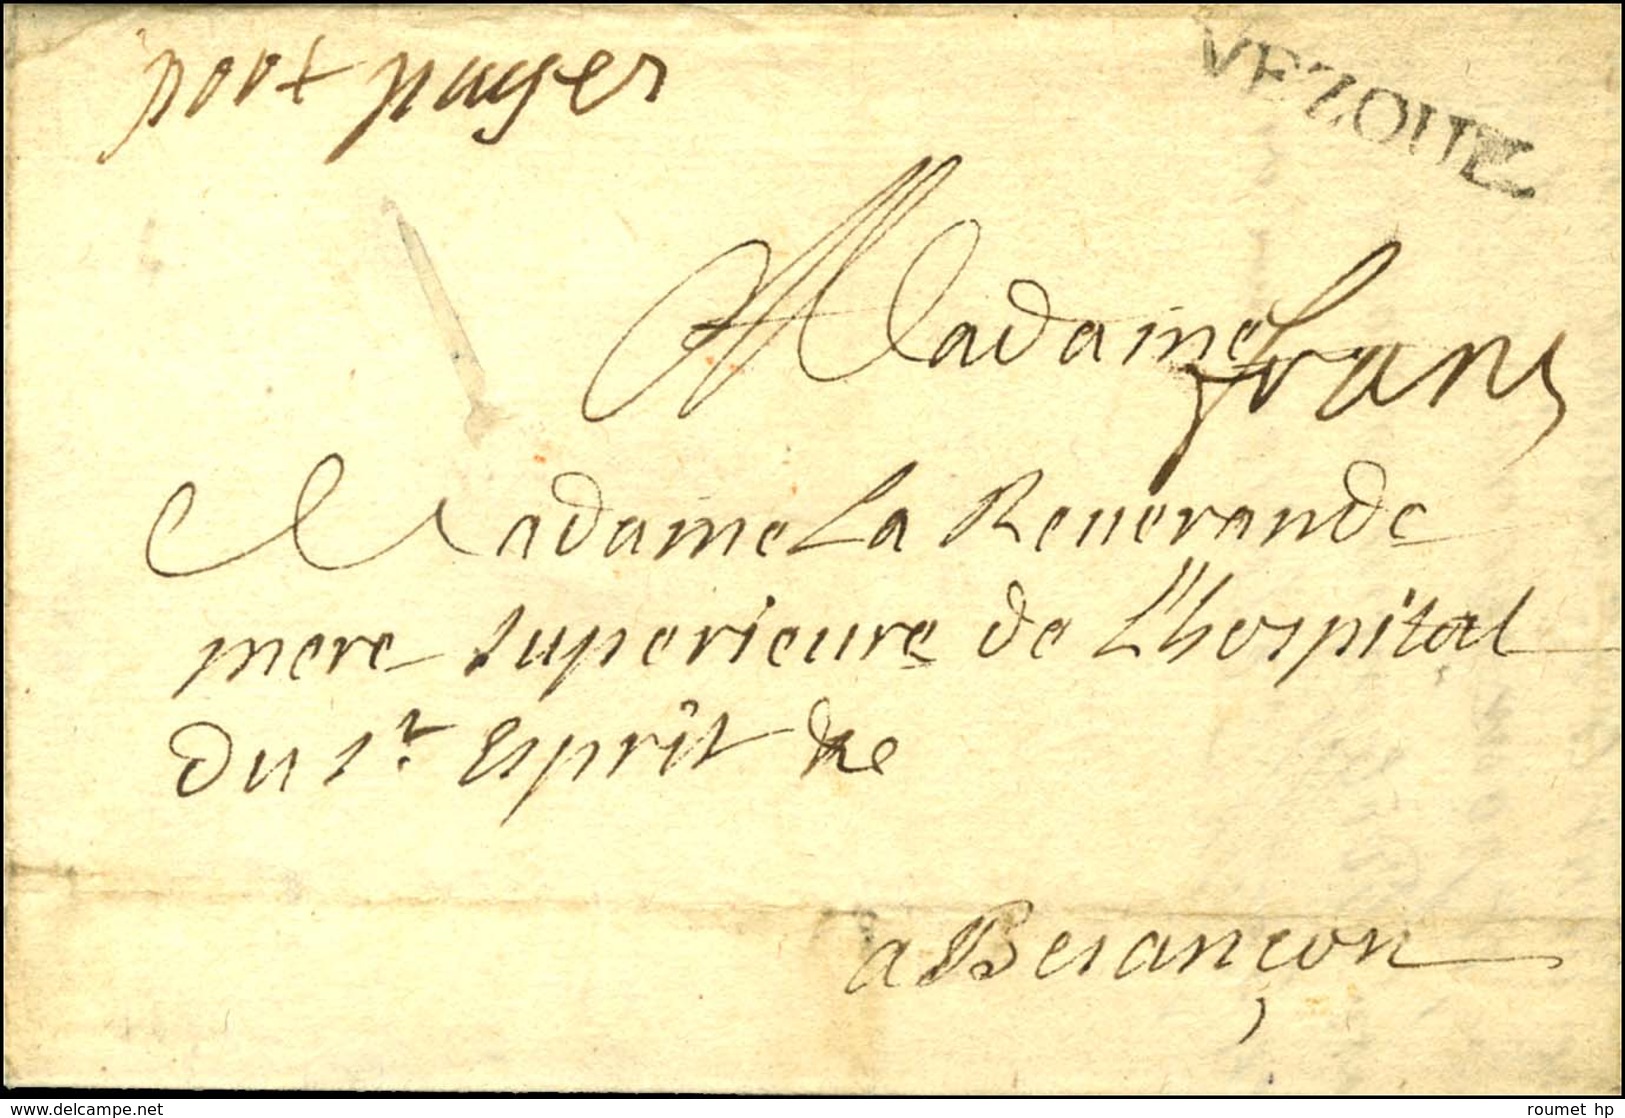 port payer
VEZOUL
Madame
franc
Madame La Reuerande
mere superieure de L'hospital
du st. Esprit de
a Besançon
www.delcampe.net
roumet hp